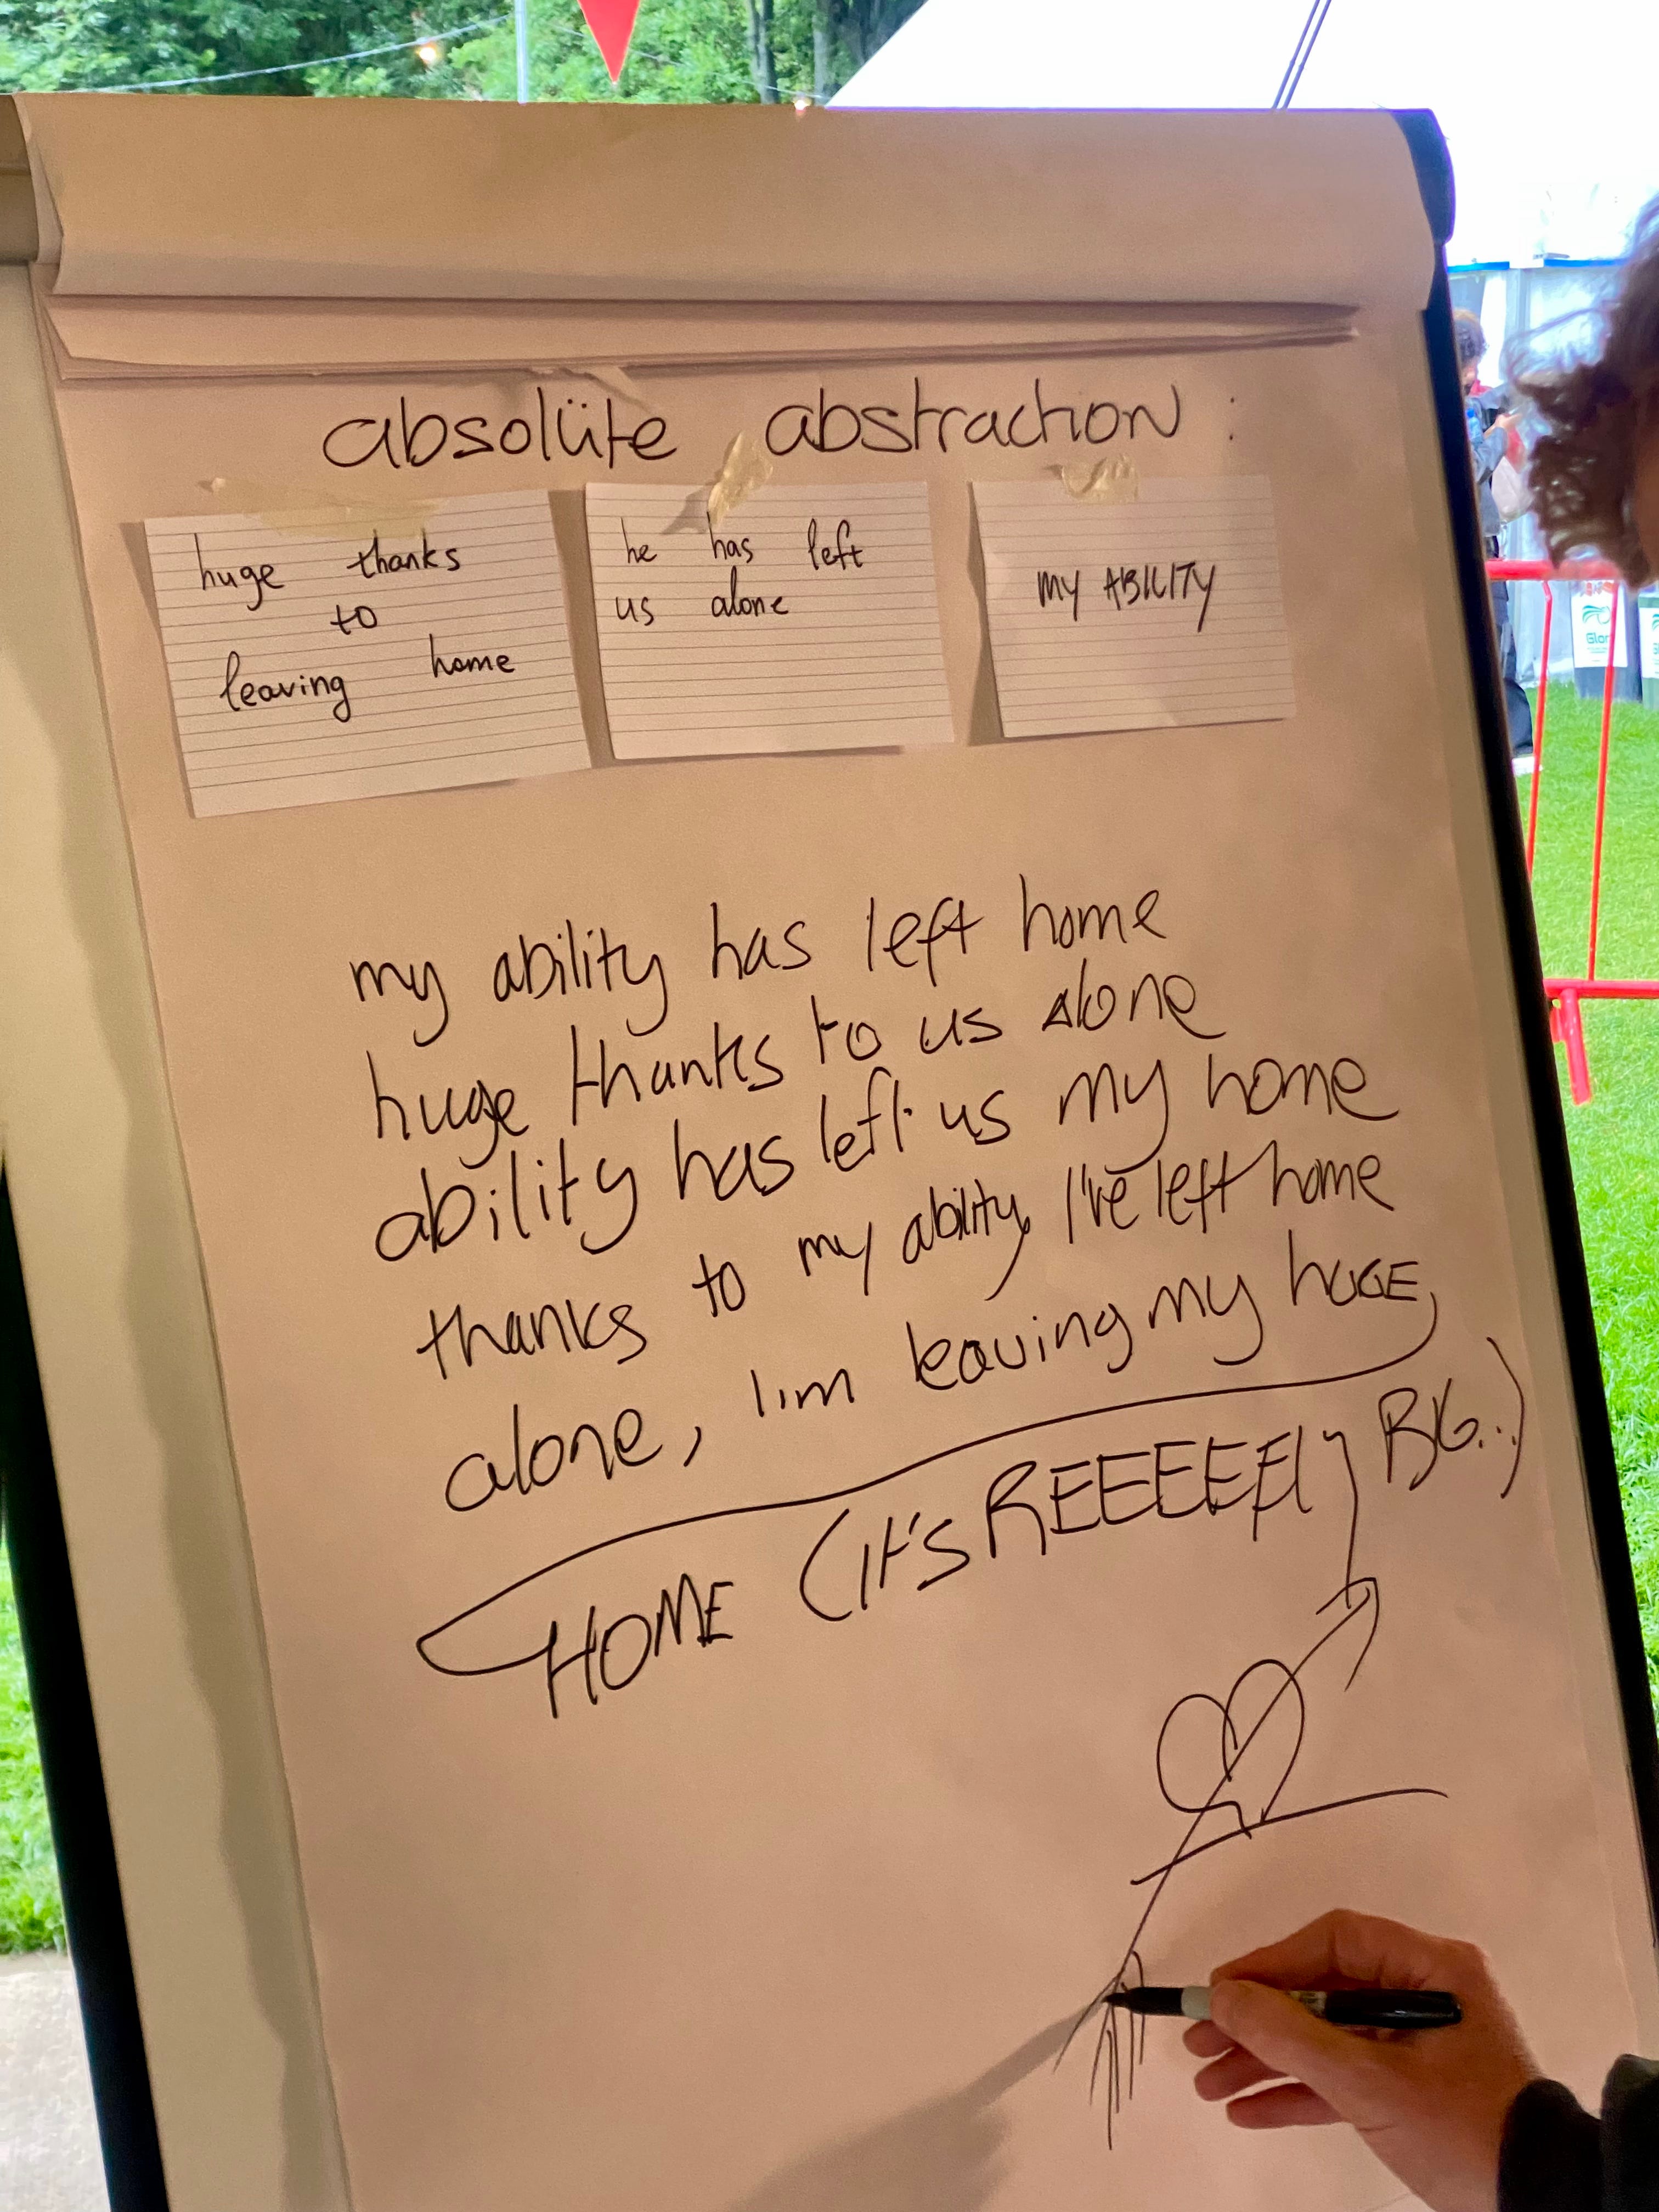 absolüte abstraction:
huge thanks
to
leaving home
he has left
us alone
my ABILITY
my ability has left home
huge thanks to us alone
ability has left us my home
thanks to my ability, I've left home
alone, I'm leaving my HUGE,
HOME (it's REEEEEEly BIG...)